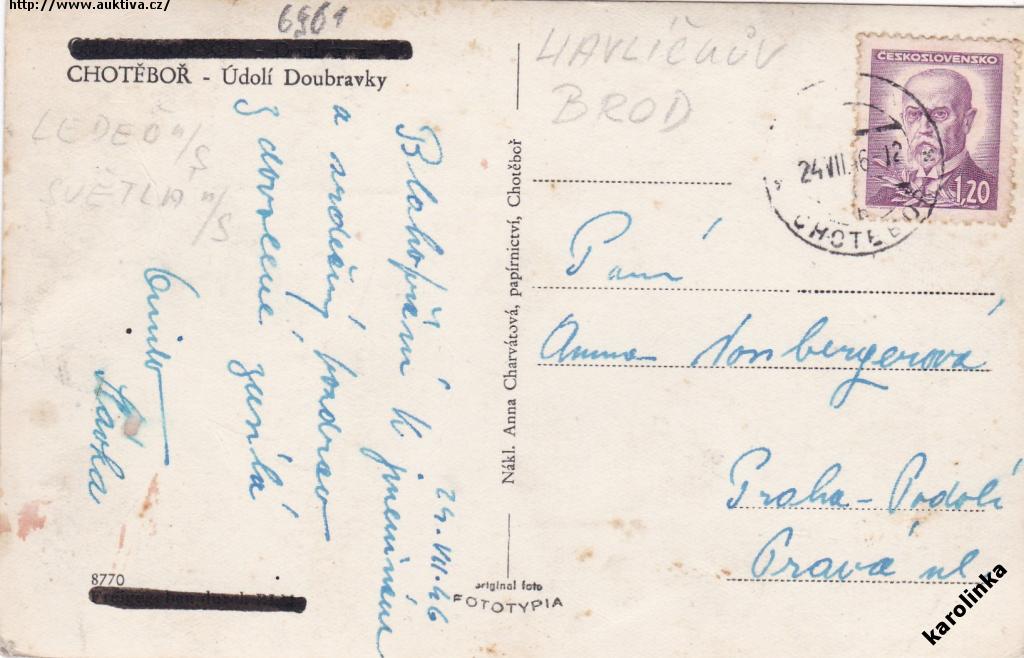 http://www.auktiva.cz/
6961
CHOTĚBOŘ - Údolí Doubravky
LEDEČ n/S
SVĚTLÁ n/S
24.VII.46
Blahopřání k jmeninám
a srdečný pozdrav
z dovolené zasílá
Slávka
8770
Nákl. Anna Charvátová, papírnictví, Chotěboř
original foto
FOTOTYPIA
HAVLÍČKŮV
BROD
ČESKOSLOVENSKO
1,20
24.VII.46-12
CHOTĚBOŘ
Paní
Anna Vonbergerová
Praha-Podolí
Pravá ul
karolinka